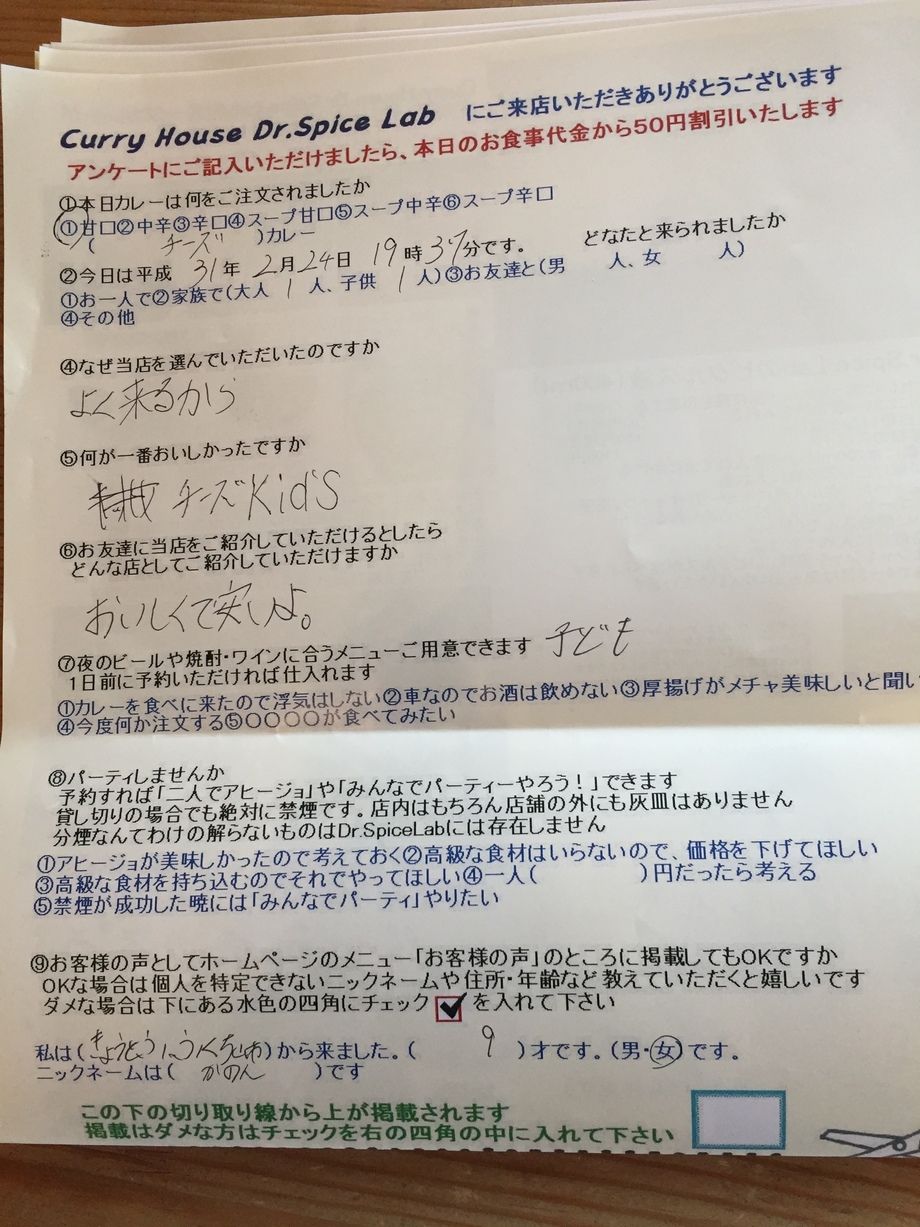 Curry House Dr.Spice Lab にご来店いただきありがとうございます
アンケートにご記入いただけましたら、本日のお食事代金から50円割引いたします
①本日カレーは何をご注文されましたか
①甘口②中辛③辛口④スープ甘口⑤スープ中辛⑥スープ辛口
( チーズ )カレー
②今日は平成 31年 2月24日 19時37分です。 どなたと来られましたか
①お一人で②家族で(大人 1 人、子供 1 人)③お友達と(男 人、女 人)
④その他
④なぜ当店を選んでいただいたのですか
よく来るから
⑤何が一番おいしかったですか
チーズKid'S
⑥お友達に当店をご紹介していただけるとしたら
どんな店としてご紹介していただけますか
おいしくて安いよ。
⑦夜のビールや焼酎・ワインに合うメニューご用意できます 子ども
1日前に予約いただければ仕入れます
①カレーを食べに来たので浮気はしない②車なのでお酒は飲めない③厚揚げがメチャ美味しいと聞い
④今度何か注文する⑤〇〇〇〇が食べてみたい
⑧パーティしませんか
予約すれば「二人でアヒージョ」や「みんなでパーティーやろう！」できます
貸し切りの場合でも絶対に禁煙です。店内はもちろん店舗の外にも灰皿はありません
分煙なんてわけの解らないものはDr.SpiceLabには存在しません
①アヒージョが美味しかったので考えておく②高級な食材はいらないので、価格を下げてほしい
③高級な食材を持ち込むのでそれでやってほしい④一人( )円だったら考える
⑤禁煙が成功した暁には「みんなでパーティ」やりたい
⑨お客様の声としてホームページのメニュー「お客様の声」のところに掲載してもOKですか
OKな場合は個人を特定できないニックネームや住所・年齢など教えていただくと嬉しいです
ダメな場合は下にある水色の四角にチェック を入れて下さい
私は( )から来ました。( 9 )才です。(男・女)です。
ニックネームは( かのん )です
この下の切り取り線から上が掲載されます
掲載はダメな方はチェックを右の四角の中に入れて下さい